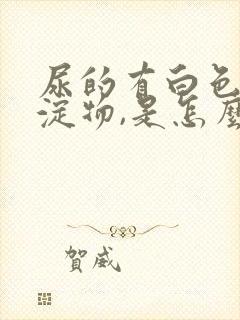 尿的有白色
淀物,是怎麼
賀威